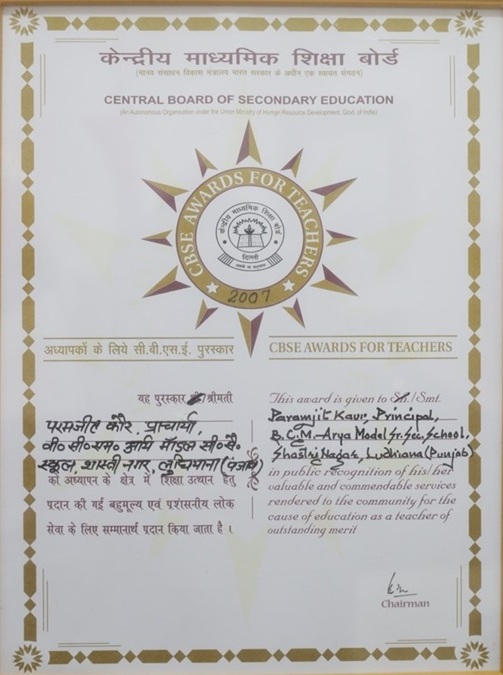 केन्द्रीय माध्यमिक शिक्षा बोर्ड
(मानव संसाधन विकास मंत्रालय भारत सरकार के अधीन एक स्वायत्त संगठन)
CENTRAL BOARD OF SECONDARY EDUCATION
(An Autonomous Organisation under the Union Ministry of Human Resource Development, Govt. of India)
CBSE AWARDS FOR TEACHERS
केन्द्रीय माध्यमिक शिक्षा बोर्ड
दिल्ली
असतो मा सद्गमय
2007
अध्यापकों के लिये सी.बी.एस.ई. पुरस्कार
यह पुरस्कार श्री/श्रीमती
परमजीत कौर, प्राचार्या,
बी०सी०एम० आर्य मॉडल सी०सै०
स्कूल, शास्त्री नगर, लुधियाना (पंजाब)
को अध्यापन के क्षेत्र में शिक्षा उत्थान हेतु
प्रदान की गई बहुमूल्य एवं प्रशंसनीय लोक
सेवा के लिए सम्मानार्थ प्रदान किया जाता है ।
CBSE AWARDS FOR TEACHERS
This award is given to Sh./Smt.
Paramjit Kaur, Principal,
B.C.M.-Arya Model Sr. Sec. School,
Shastri Nagar, Ludhiana (Punjab)
in public recognition of his/her
valuable and commendable services
rendered to the community for the
cause of education as a teacher of
outstanding merit
Chairman